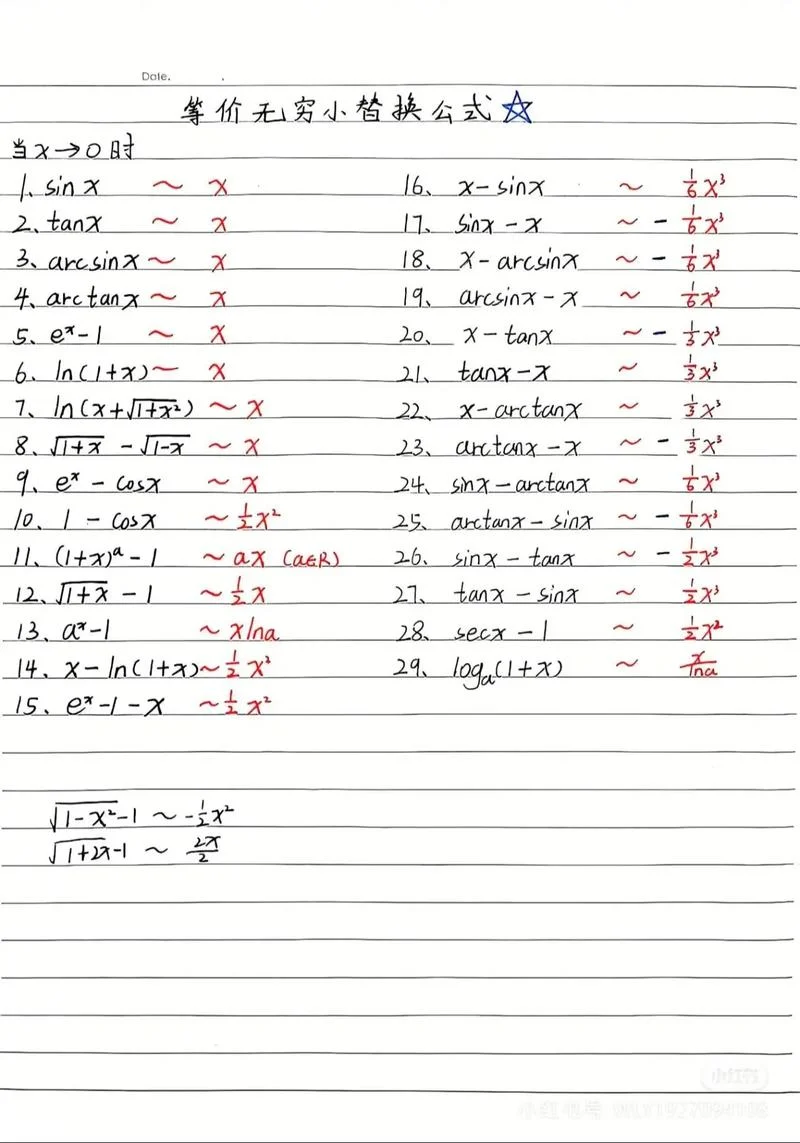 Date.
等价无穷小替换公式☆
当x→0时
1、sinx ~ x
2、tanx ~ x
3、arcsinx ~ x
4、arctanx ~ x
5、eˣ-1 ~ x
6、ln(1+x) ~ x
7、ln(x+√(1+x²)) ~ x
8、√(1+x) - √(1-x) ~ x
9、eˣ - cosx ~ x
10、1 - cosx ~ 1/2 x²
11、(1+x)ᵃ - 1 ~ ax (a∈R)
12、√(1+x) - 1 ~ 1/2 x
13、aˣ-1 ~ xlna
14、x - ln(1+x) ~ 1/2 x²
15、eˣ-1-x ~ 1/2 x²
16、x-sinx ~ 1/6 x³
17、sinx-x ~ - 1/6 x³
18、x-arcsinx ~ - 1/6 x³
19、arcsinx-x ~ 1/6 x³
20、x-tanx ~ - 1/3 x³
21、tanx-x ~ 1/3 x³
22、x-arctanx ~ 1/3 x³
23、arctanx-x ~ - 1/3 x³
24、sinx-arctanx ~ 1/6 x³
25、arctanx-sinx ~ - 1/6 x³
26、sinx-tanx ~ - 1/2 x³
27、tanx-sinx ~ 1/2 x³
28、secx-1 ~ 1/2 x²
29、logₐ(1+x) ~ x/lna
√(1-x²)-1 ~ -1/2 x²
√(1+2x)-1 ~ 2x/2
小红书